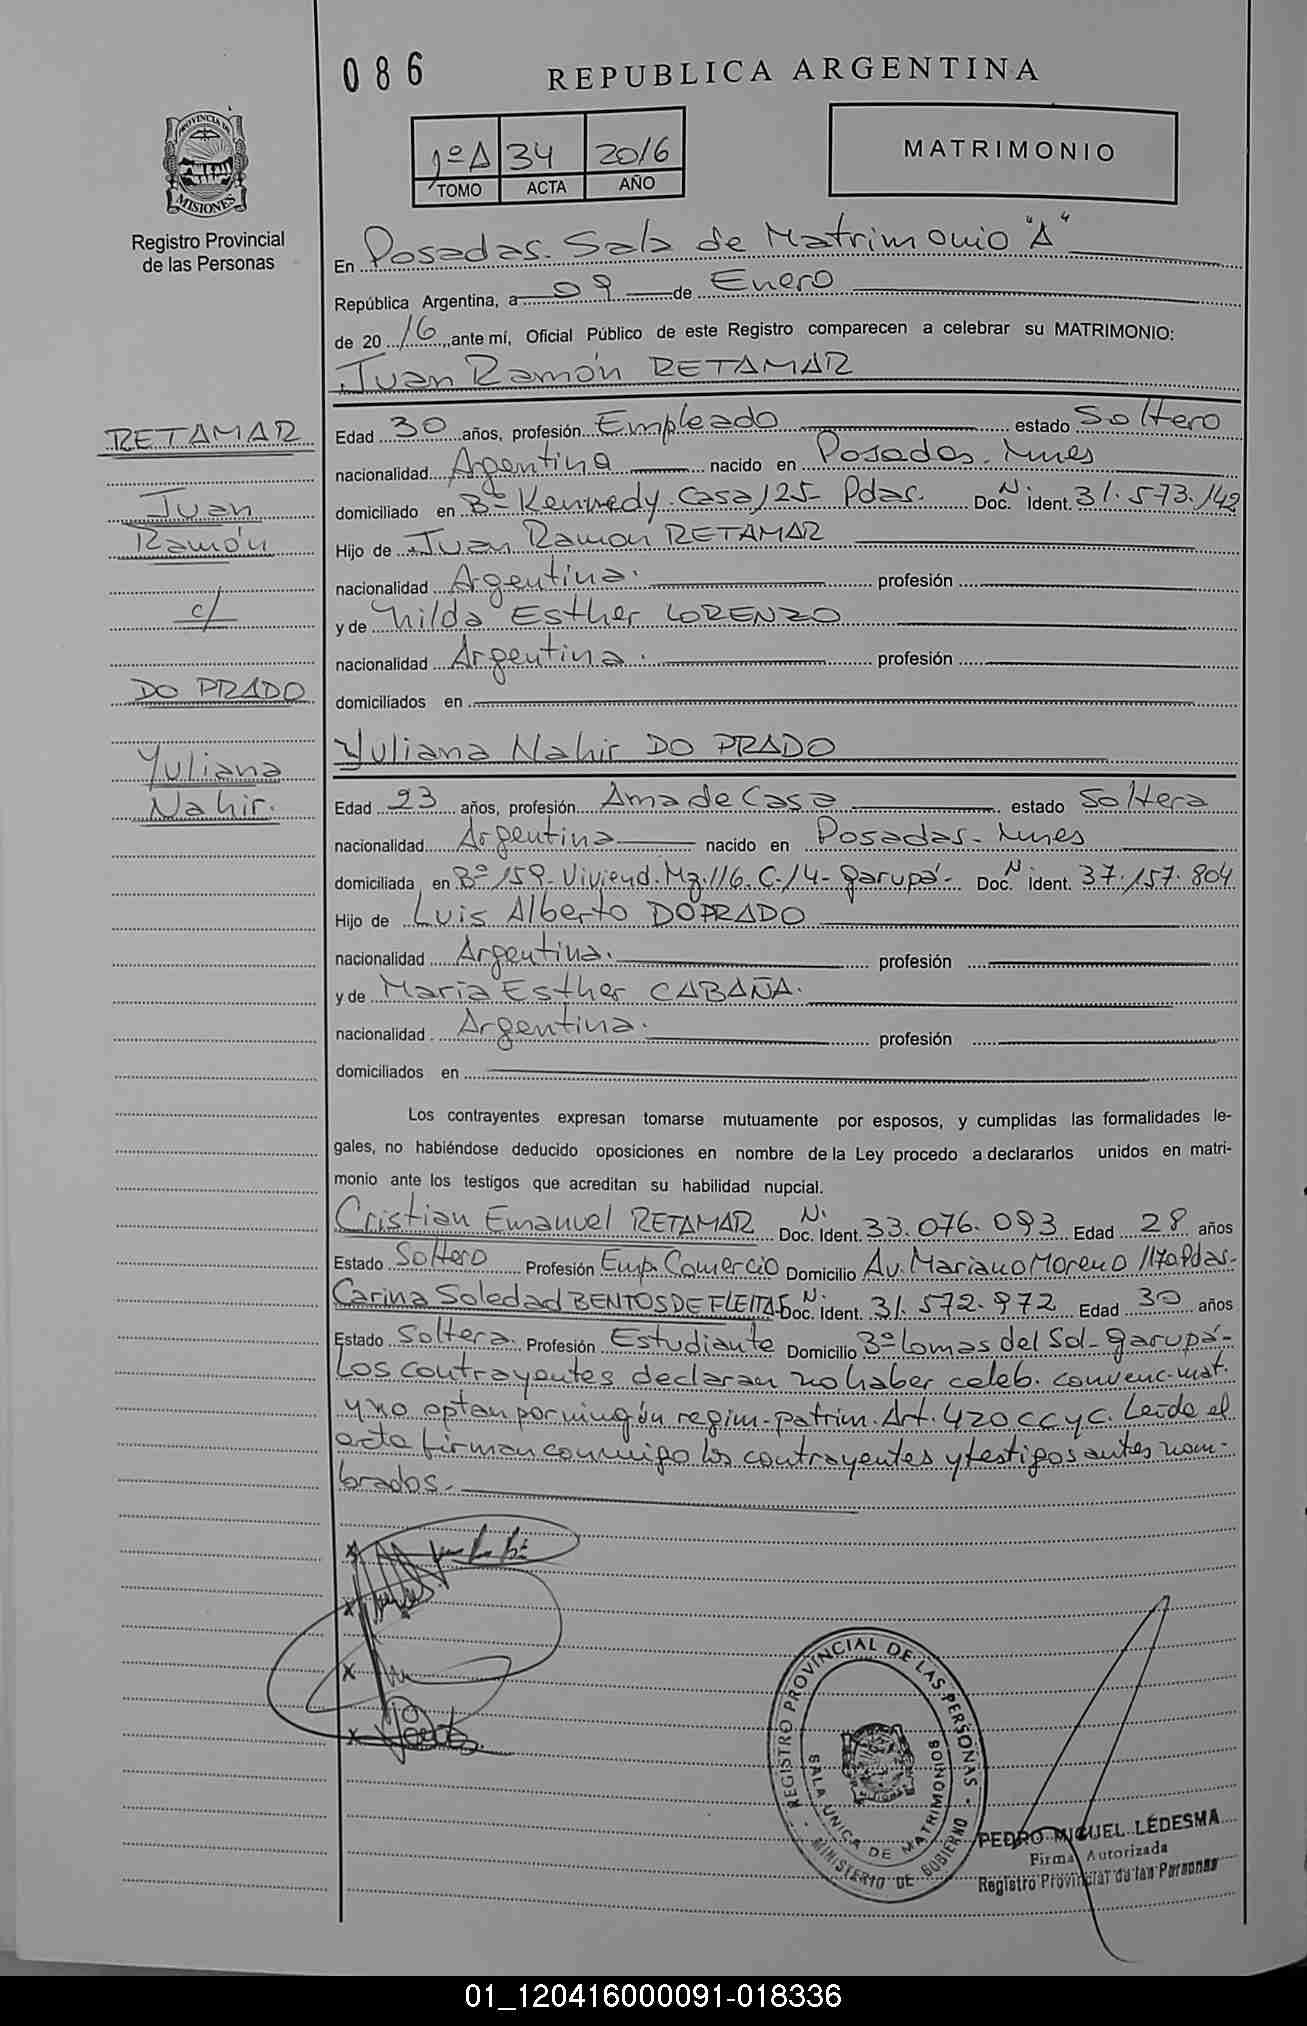 086
REPUBLICA ARGENTINA
PROVINCIA DE
MISIONES
Registro Provincial
de las Personas
1º A 34 2016
TOMO ACTA AÑO
MATRIMONIO
En Posadas. Sala de Matrimonio "A"
República Argentina, a 09 de Enero
de 20 16, ante mí, Oficial Público de este Registro comparecen a celebrar su MATRIMONIO:
Juan Ramón RETAMAR
RETAMAR
Juan
Ramón
c/
DO PRADO
Yuliana
Nahir.
Edad 30 años, profesión Empleado estado Soltero
nacionalidad Argentina nacido en Posadas. Mnes
domiciliado en Bº Kennedy. Casa 125- Pdas. Doc. N ident. 31.573.142
Hijo de Juan Ramon RETAMAR
nacionalidad Argentina. profesión
y de Nilda Esther LORENZO
nacionalidad Argentina. profesión
domiciliados en
Yuliana Nahir DO PRADO
Edad 23 años, profesión Ama de Casa estado Soltera
nacionalidad Argentina nacido en Posadas. Mnes
domiciliada en Bº 159- Viviend. Mz. 116. C-14- Garupá- Doc. N ident. 37.157.804
Hijo de Luis Alberto DO PRADO
nacionalidad Argentina. profesión
y de María Esther CABAÑA.
nacionalidad Argentina. profesión
domiciliados en
Los contrayentes expresan tomarse mutuamente por esposos, y cumplidas las formalidades le-
gales, no habiéndose deducido oposiciones en nombre de la Ley procedo a declararlos unidos en matri-
monio ante los testigos que acreditan su habilidad nupcial.
Cristian Emanuel RETAMAR Doc. N. Ident. 33.076.093 Edad 28 años
Estado Soltero Profesión Emp. Comercio Domicilio Av. Mariano Moreno 1170 Pdas-
Carina Soledad BENTOS DE FLEITAS Doc. N. ident. 31.572.972 Edad 30 años
Estado Soltera. Profesión Estudiante Domicilio Bº Lomas del Sol- Garupá-
Los contrayentes declaran no haber celeb. convenc. mat.
y no optan por ningún regim-patrim. Art. 420 CCyC. Leída el
acta firman conmigo los contrayentes y testigos antes nom-
brados.
REGISTRO PROVINCIAL DE LAS PERSONAS
SALA UNICA DE MATRIMONIOS
MINISTERIO DE GOBIERNO
PEDRO MIGUEL LEDESMA
Firma Autorizada
Registro Provincial de las Personas
01_120416000091-018336